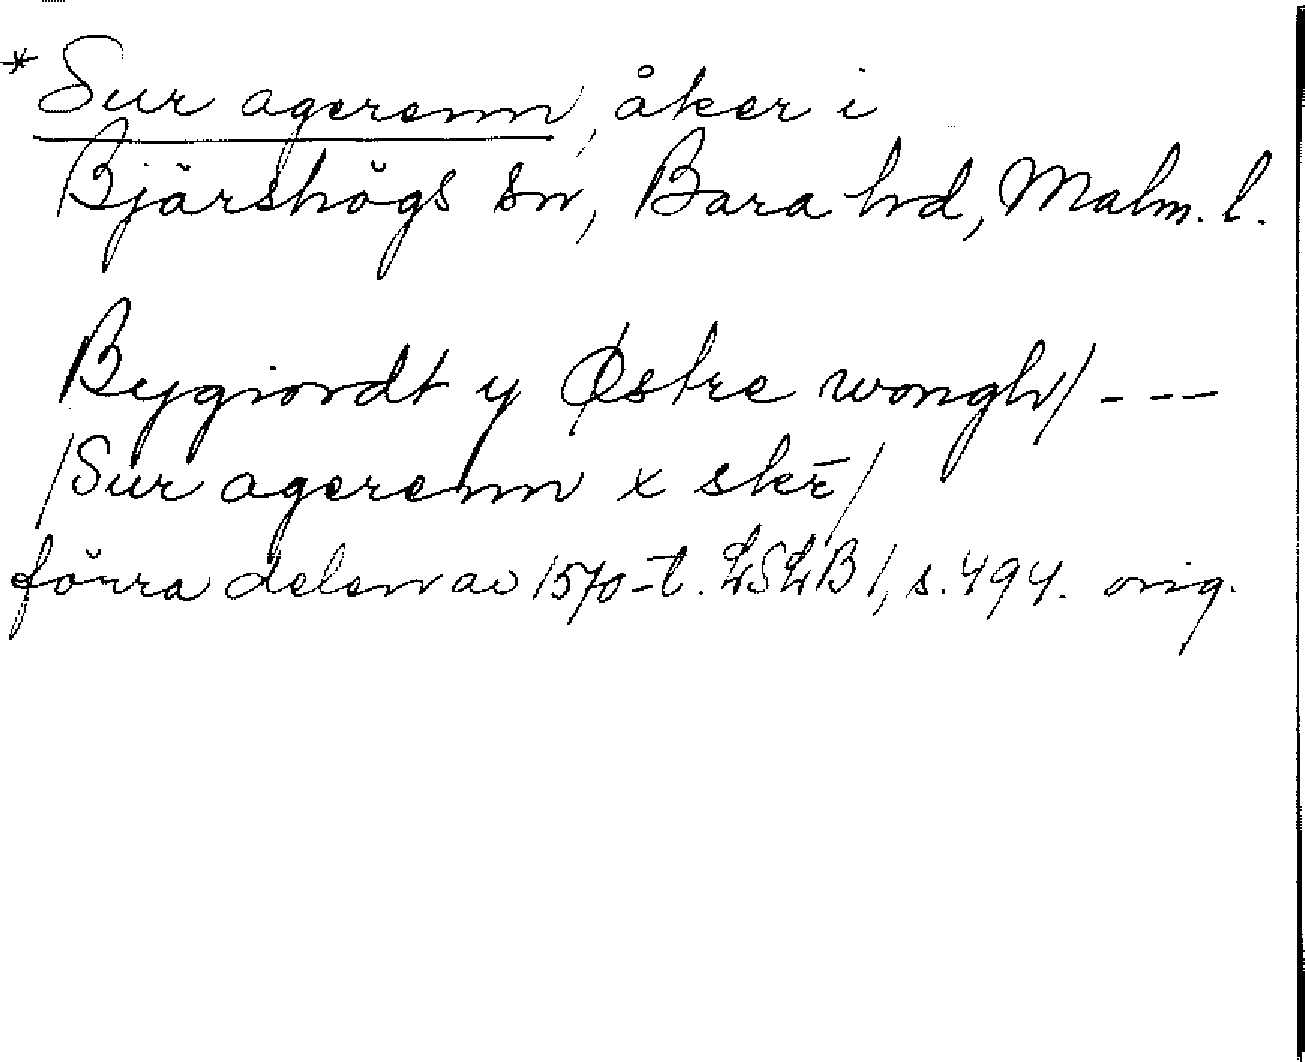 *Sur agerenn, åker i
Bjärshögs sn, Bara hd, Malm. l.
Bygiordt y Østre wongh/ ---
/Sur agerenn x skē/
förra delen av 1570-t. LSLB 1, s. 494. orig.